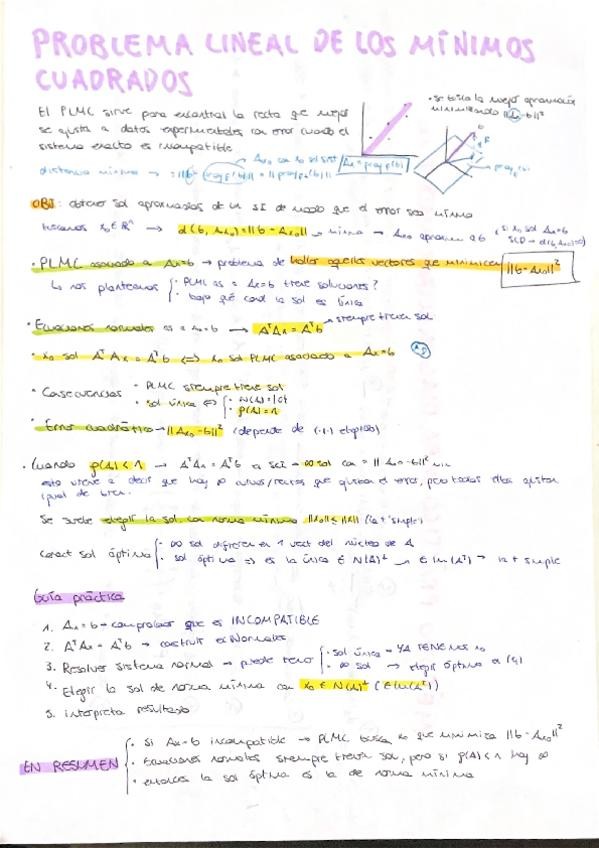 PROBLEMA LINEAL DE LOS MÍNIMOS
CUADRADOS
El PLMC sirve para encontrar la recta que mejor
se ajusta a datos experimentales con error cuando el
sistema exacto es incompatible
· se busca la mejor aproximación
minimizando ||Ax-b||²
distancia mínima → = ||b - proy_F(b)|| = ||proy_F⊥(b)||
Ax₀ con x₀ sol sist Ax = proy_F(b)
b
F
proy_F(b)
OBJ: obtener sol aproximadas de un SI de modo que el error sea mínimo
buscamos x₀ ∈ ℝⁿ → d(b, Ax₀) = ||b - Ax₀|| mínima → Ax₀ aproxima a b
si x₀ sol Ax=b
SCD → d(b, Ax₀)=0
· PLMC asociado a Ax=b → problema de hallar aquellos vectores que minimicen ||b-Ax₀||²
↳ nos planteamos { · PLMC as a Ax=b tiene soluciones?
· bajo qué cond la sol es única
· Ecuaciones normales as a Ax=b → AᵀAx = Aᵀb → siempre tienen sol
· x₀ sol AᵀAx = Aᵀb ⟺ x₀ sol PLMC asociado a Ax=b
· Consecuencias · PLMC siempre tiene sol
· sol única ⟺ { · N(A)={0}
· ρ(A)=n
· Error cuadrático → ||Ax₀-b||² (depende de (·|·) elegido)
· Cuando ρ(A) < n → AᵀAx = Aᵀb es SCI → ∞ sol con = ||Ax₀-b||² min
esto viene a decir que hay ∞ curvas/rectas que ajustan el error, pero todas ellas ajustan
igual de bien.
Se suele elegir la sol. con norma mínima ||x₀|| ≤ ||x|| (la + simple)
Caract sol óptima { · ∞ sol difieren en 1 vect del núcleo de A
· sol óptima ⇒ es la única ∈ N(A)⊥ → ∈ Im(Aᵀ) → la + simple
Guía práctica
1. Ax=b → comprobar que es INCOMPATIBLE
2. AᵀAx = Aᵀb → construir ec Normales
3. Resolver sistema normal → puede tener { · sol única → YA TENEMOS x₀
· ∞ sol → elegir óptima
4. Elegir la sol de norma mínima con x₀ ∈ N(A)⊥ (∈ Im(Aᵀ))
5. interpreta resultado
EN RESUMEN { · Si Ax=b incompatible → PLMC busca x₀ que minimiza ||b-Ax₀||²
· Ecuaciones normales siempre tienen sol, pero si ρ(A)<n hay ∞
· entonces la sol óptima es la de norma mínima